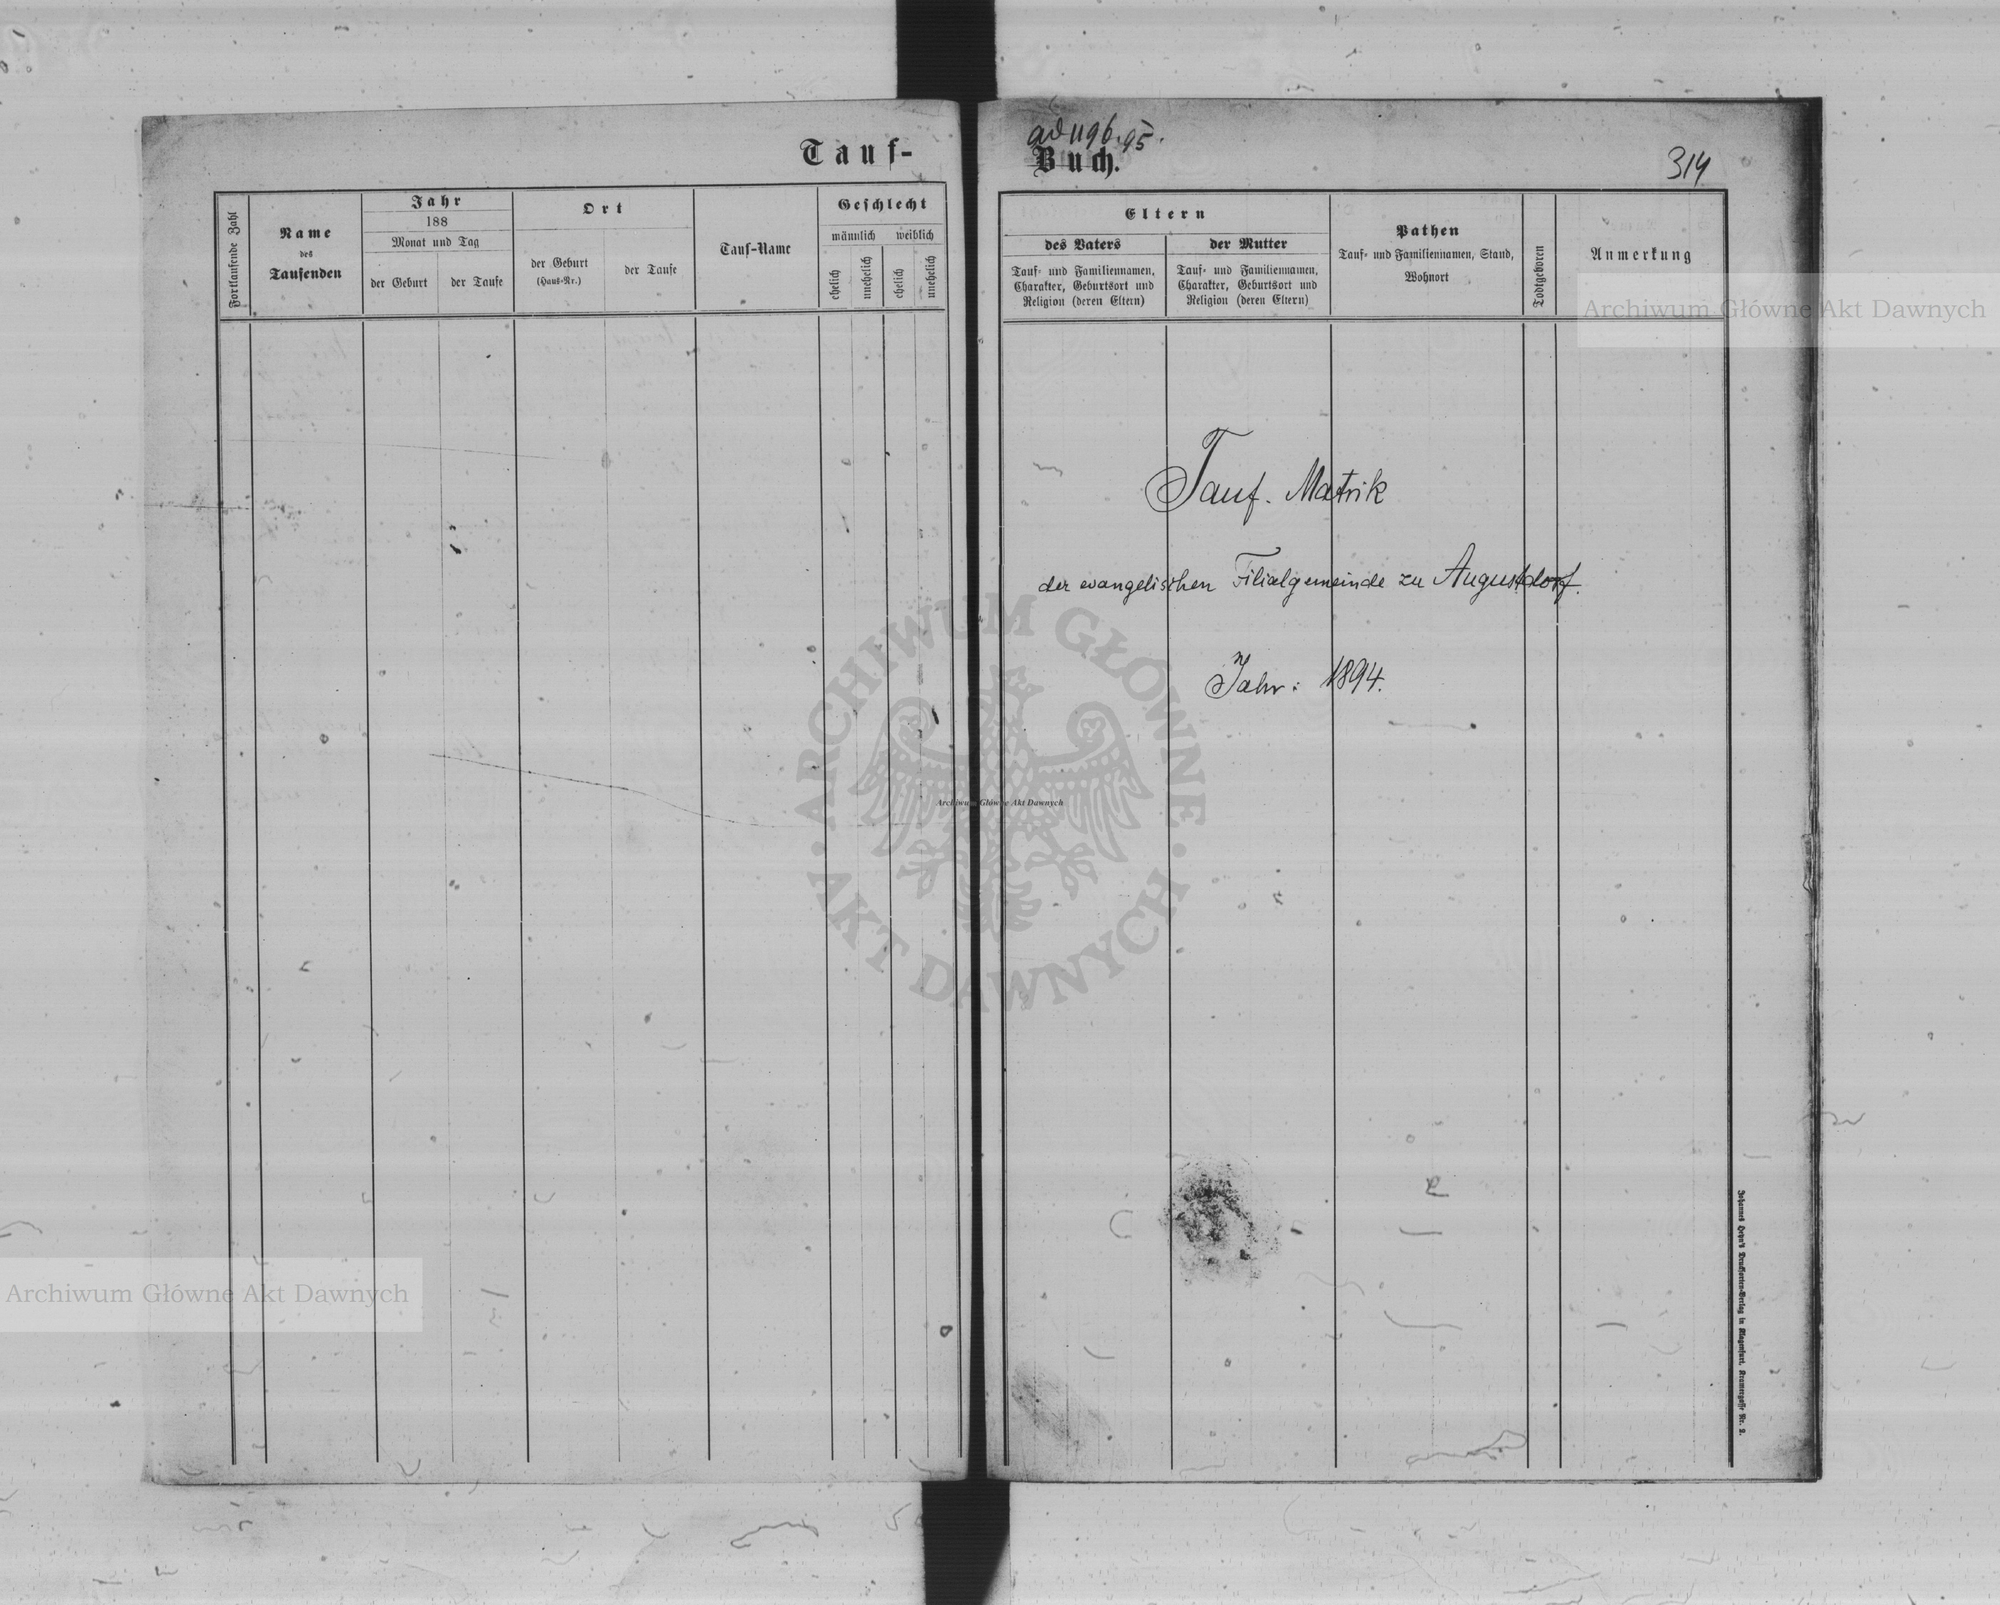 Tauf-
Fortlaufende Zahl
Name
des
Taufenden
Jahr
188
Monat und Tag
der Geburt
der Taufe
Ort
der Geburt
(Haus-Nr.)
der Taufe
Tauf-Name
Geschlecht
männlich
weiblich
ehelich
unehelich
ehelich
unehelich
ad 1196.95.
Buch.
314
Eltern
des Vaters
Tauf- und Familiennamen,
Charakter, Geburtsort und
Religion (deren Eltern)
der Mutter
Tauf- und Familiennamen,
Charakter, Geburtsort und
Religion (deren Eltern)
Pathen
Tauf- und Familiennamen, Stand,
Wohnort
Todtgeboren
Anmerkung
Archiwum Główne Akt Dawnych
Tauf. Matrik
der evangelischen Filialgemeinde zu Augustdorf.
Jahr: 1894.
ARCHIWUM GŁÓWNE
AKT DAWNYCH
Archiwum Główne Akt Dawnych
Archiwum Główne Akt Dawnych
Johannes Heyn's Drucksorten-Verlag in Klagenfurt, Kramergasse Nr. 2.